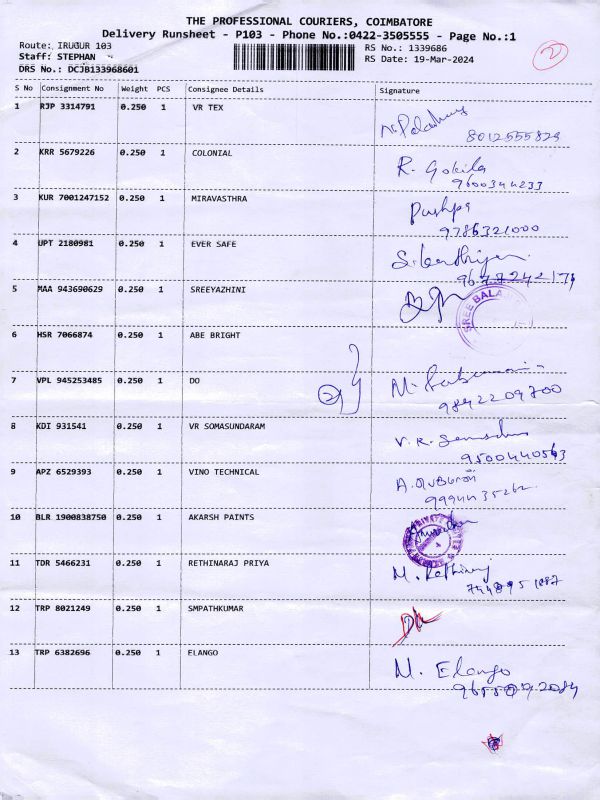 THE PROFESSIONAL COURIERS, COIMBATORE
Delivery Runsheet - P103 - Phone No.:0422-3505555 - Page No.:1
Route: IRUGUR 103
RS No.: 1339686
2
Staff: STEPHAN
RS Date: 19-Mar-2024
DRS No.: DCJB133968601
S No Consignment No Weight PCS Consignee Details Signature
1 RJP 3314791 0.250 1 VR TEX
8012555829
2 KRR 5679226 0.250 1 COLONIAL R. Gokila
9600344233
3 KUR 7001247152 0.250 1 MIRAVASTHRA Pushpa
9786321000
4 UPT 2180981 0.250 1 EVER SAFE
5 MAA 943690629 0.250 1 SREEYAZHINI
SREE BALA
6 HSR 7066874 0.250 1 ABE BRIGHT
7 VPL 945253485 0.250 1 DO
2
9842209700
8 KDI 931541 0.250 1 VR SOMASUNDARAM
9500440563
9 APZ 6529393 0.250 1 VINO TECHNICAL
9994435262
10 BLR 1900838750 0.250 1 AKARSH PAINTS
11 TDR 5466231 0.250 1 RETHINARAJ PRIYA
12 TRP 8021249 0.250 1 SMPATHKUMAR
13 TRP 6382696 0.250 1 ELANGO M. Elango